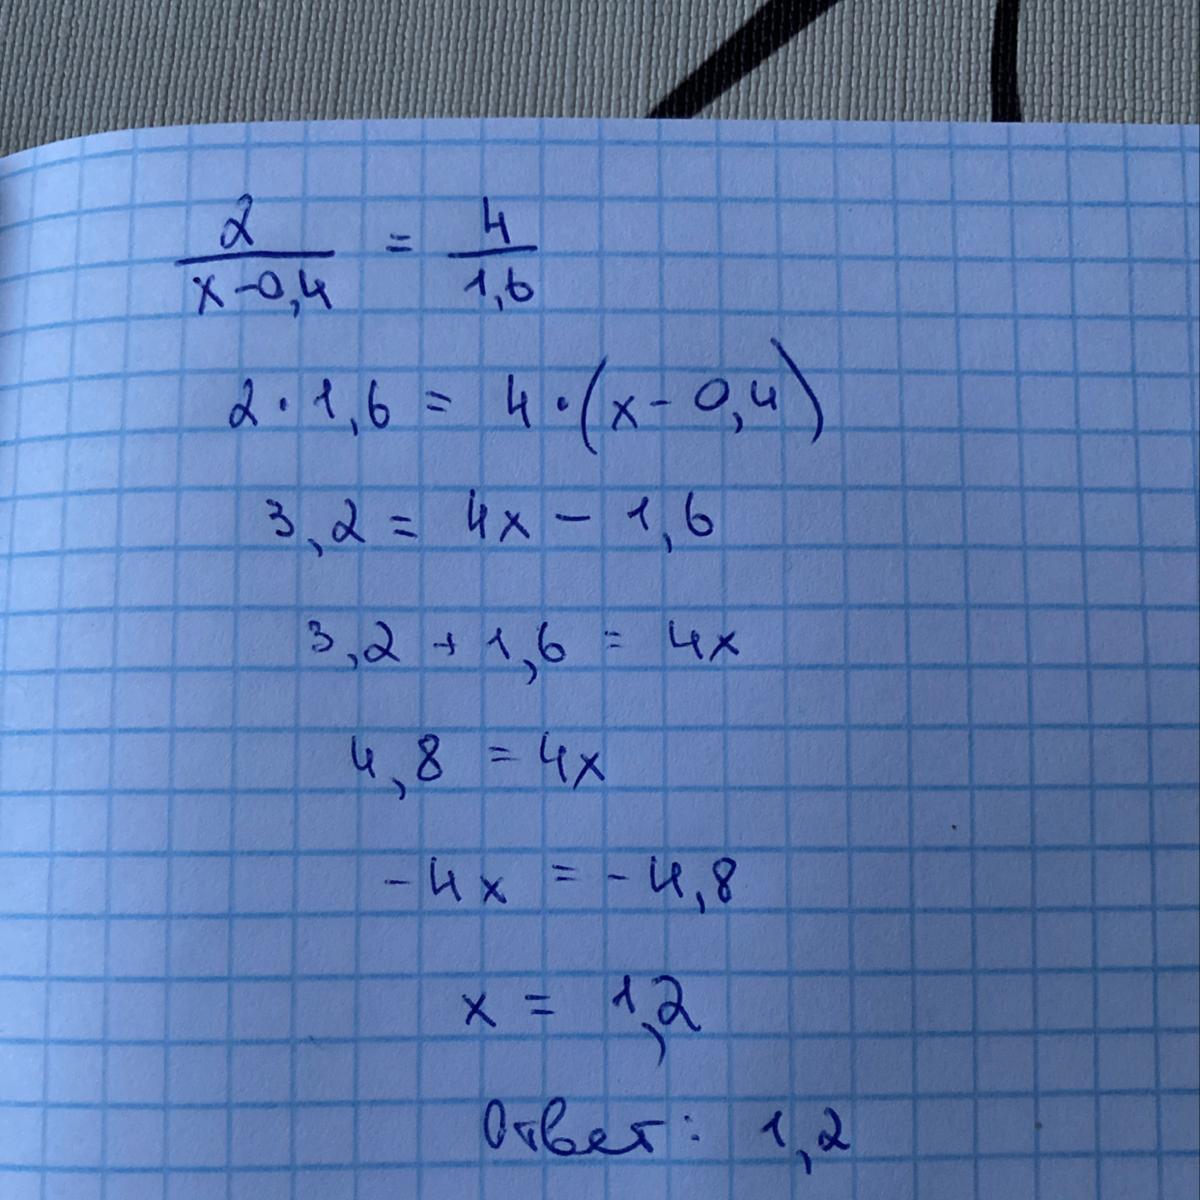 2/(x-0,4) = 4/1,6
2·1,6 = 4·(x-0,4)
3,2 = 4x - 1,6
3,2 + 1,6 = 4x
4,8 = 4x
-4x = -4,8
x = 1,2
Ответ: 1,2